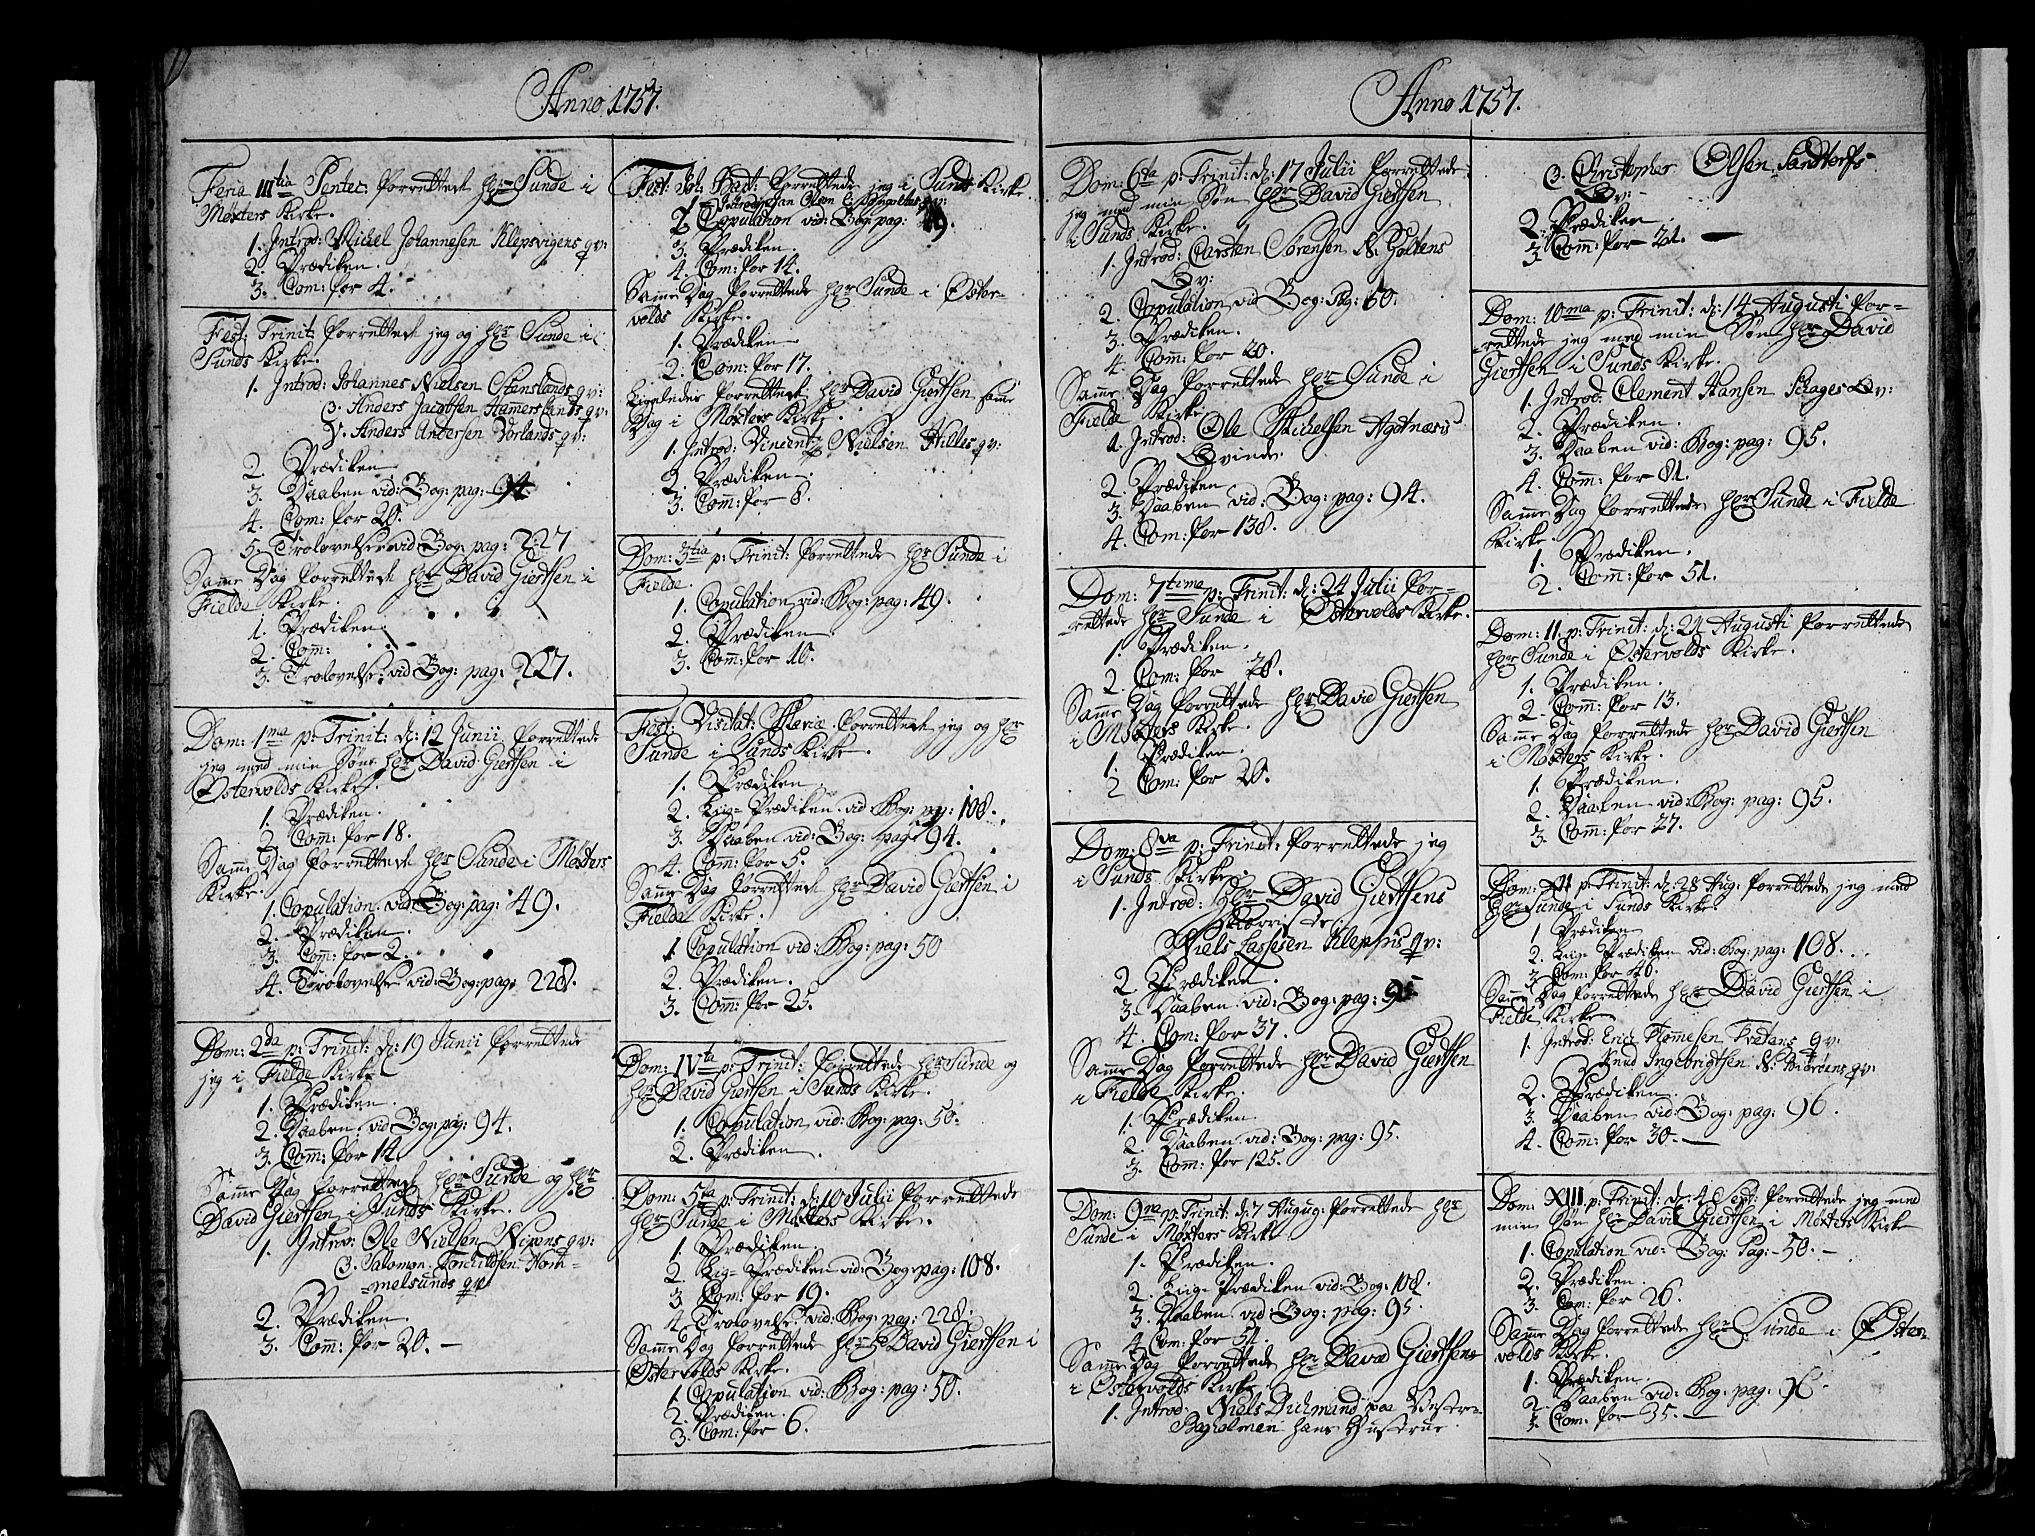 Anno 1757.
Feria IIItia Pentec: forrettede hr Sunde i
Møxters Kirke.
1. Introd: Michel Johannesen Klepsvigens qv:
2. Prædiken.
3. Com: for 4.
Fest: Trinit: forrettede jeg og hr Sunde i
Sunds Kirke.
1. Introd: Johannes Nielsen Stenslands qv:
2. Anders Jacobsen Hamerslands qv:
Anders Andersen Vorlands qv:
2. Prædiken
3. Daaben vid: Bog: pag: 94.
4. Com: for 20.
5. Trolovelse vid Bog: pag: 227
Samme Dag forrettede hr David Giertsen i
Fielde Kirke.
1. Prædiken.
2. Com:
3. Trolovelse: vid Bog: pag: 227.
Dom: 1ma p: Trinit: d: 12 Junii forrettede
jeg med min Søn hr David Giertsen i
Østervolds Kirke.
1. Prædiken.
2. Com: for 18.
Samme Dag forrettede hr Sunde i Møxters
Kirke.
1. Copulation. vid: Bog: pag: 49.
2. Prædiken.
3. Com: for 2.
4. Trolovelse vid: Bog: pag: 228.
Dom: 2da p: Trinit: d: 19 Junii forrettede
jeg i Fielde Kirke
1. Prædiken.
2. Daaben vid Bog: pag: 94.
3. Com: for 14.
Samme Dag forrettede hr Sunde og hr
David Giertsen i Sunds Kirke.
1. Introd: Ole Nielsen Nipens qv:
2. Salomon Torchildsen Hom-
melsunds qv:
2. Prædiken.
3. Com: for 20. —
Fest: Joh: Bapt: forrettede jeg i Sunds Kirke.
2. Copulation vid: Bog: pag: 49.
3. Prædiken.
4. Com: for 14.
Samme Dag forrettede hr Sunde i Øster-
volds Kirke.
1. Prædiken
2. Com: for 17.
Ligeledes forrettede hr David Giertsen samme
Dag i Møxters Kirke.
1. Introd: Vincent Nielsen Hilles qv:
2. Prædiken.
3. Com: for 8.
Dom: 3tia p: Trinit: forrettede hr Sunde i
Fielde.
1. Copulation vid: Bog: pag: 49.
2. Prædiken.
3. Com: for 10.
Fest: Visitat: Mariæ forrettede jeg og hr
Sunde i Sunds Kirke.
1. Prædiken.
2. Liig-Prædiken. vid Bog: pag: 108.
3. Daaben vid: Bog: pag: 94.
4. Com: for 5.
Samme Dag forrettede hr David Giertsen i
Fielde Kirke.
1. Copulation vid: Bog: pag: 50
2. Prædiken.
3. Com: for 25.
Dom: IVta p: Trinit: forrettede hr Sunde og
hr David Giertsen i Sunds Kirke.
1. Copulation vid: Bog: pag: 50.
2. Prædiken.
Dom: 5ta p: Trinit: d: 10 Julii forrettede
hr Sunde i Møxters Kirke.
1. Prædiken.
2. Liig-Prædiken vid: Bog: pag: 108.
3. Com: for 19.
4. Trolovelse vid Bog: pag: 228.
Samme Dag forrettede hr David Giertsen i
Østervolds Kirke.
1. Copulation vid: Bog: pag: 50.
2. Prædiken.
3. Com: for 6.
Anno 1757.
Dom: 6ta p: Trinit: d: 17 Julii forrettede
jeg med min Søn hr David Giertsen
i Sunds Kirke.
1. Introd: Carsten Sørensen N: Goltens
Qv:
2. Copulation vid Bog: Pag: 50.
3. Prædiken.
4. Com: for 20.
Samme Dag forrettede hr Sunde i
Fielde Kirke
1. Introd: Ole Michelsen Agotnæsis
Qvinde.
2. Prædiken
3. Daaben vid: Bog: pag: 94.
4. Com: for 138.
Dom: 7tima p: Trinit: d: 24 Julii for-
rettede hr Sunde i Østervolds Kirke.
1. Prædiken.
2. Com: for 28.
Samme Dag forrettede hr David Giertsen
i Møxters Kirke.
1. Prædiken.
2 Com: for 20.
Dom: 8va p: Trinit: forrettede jeg
i Sunds Kirke.
1. Introd: Hr David Giertsens
Kierriste:
Niels Lassesen Klepens qv:
2. Prædiken.
3. Daaben vid: Bog: pag: 95
4. Com: for 37.
Samme Dag forrettede hr David Giertsen
i Fielde Kirke.
1. Prædiken.
2. Daaben vid: Bog: pag: 95.
3. Com: for 125.
Dom: 9na p: Trinit: d: 7 Augug: forrettede hr
Sunde i Møxters Kirke
1. Prædiken.
2. Liig-Prædiken vid: Bog: 108.
3. Daaben vid: Bog: pag: 95.
4. Com: for 51.
Samme Dag forrettede hr David Giertsen
i Østervolds Kirke
1. Introd: Niels Dichmand paa Vestre-
Bagholmen hans Hustrue
2. Christopher Olsen Sandtorfs
Qv:
2. Prædiken.
3. Com: for 21. —
Dom: 10ma p: Trinit: d: 14 Augusti for-
rettede jeg med min Søn hr David
Giertsen i Sunds Kirke.
1. Introd: Clement Hansen Skages Qv:
2. Prædiken.
3. Daaben vid: Bog: pag: 95.
4. Com: for 81.
Samme Dag forrettede hr Sunde i Fielde
Kirke.
1. Prædiken.
2. Com: for 51.
Dom: 11 p: Trinit: d: 21 Augusti forrettede
hr Sunde i Østervolds Kirke.
1. Prædiken.
2. Com: for 13.
Samme Dag forrettede hr David Giertsen
i Møxters Kirke.
1. Prædiken.
2. Daaben vid: Bog: pag: 95.
3. Com: for 27.
Dom: XII p: Trinit: d: 28 Aug: forrettede jeg med
hr Sunde i Sunds Kirke
1 Prædiken
2. Liig-Prædiken vid: Bog: pag: 108.
3. Com: for 40.
Samme Dag forrettede hr David Giertsen i
Fielde Kirke
1. Introd: Erich Tommesen Tveitens qv:
Knud Ingebrigtsen N: Biørøens qv:
2. Prædiken.
3. Daaben vid: Bog: pag: 96.
4. Com: for 30. —
Dom: XIII p: Trinit: d: 4 Sept: forrettede jeg med
min Søn hr David Giertsen i Møxters Kirke
1. Copulation vid: Bog: Pag: 50. —
2. Prædiken.
3. Com: for 26.
Samme Dag forrettede hr Sunde i Øster-
volds Kirke.
1. Prædiken.
2. Daaben vid: Bog: pag: 96.
3. Com: for 35. —